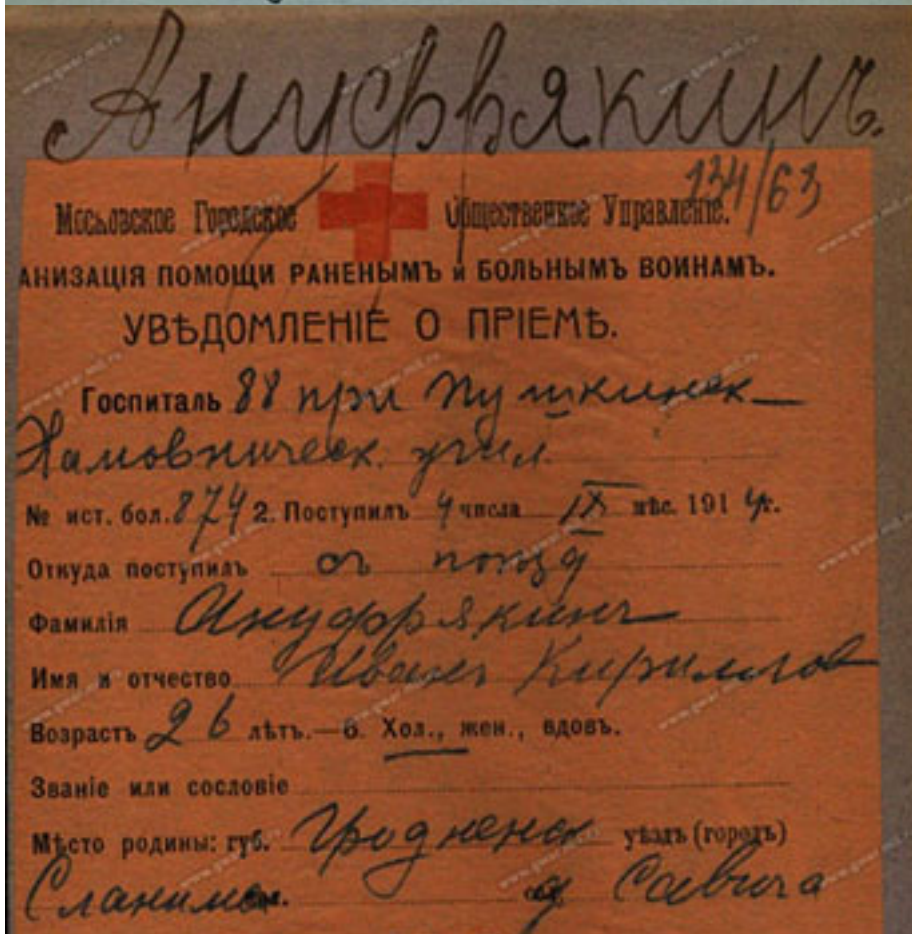 Ануфрякинъ.
134/63
Московское Городское Общественное Управленіе.
АНИЗАЦІЯ ПОМОЩИ РАНЕНЫМЪ и БОЛЬНЫМЪ ВОИНАМЪ.
УВѢДОМЛЕНІЕ О ПРІЕМѢ.
Госпиталь 88 при Пушкинск
Хамовническ. учил.
№ ист. бол. 874 2. Поступилъ 4 числа IX мѣс. 1914 г.
Откуда поступилъ съ
Фамилія Ануфрякинъ
Имя и отчество Иванъ Кириллов
Возрастъ 26 лѣтъ.—6. Хол., жен., вдов.
Званіе или сословіе
Мѣсто родины: губ. Гродненск уѣздъ (городъ)
д Савича
www.gwar.mil.ru